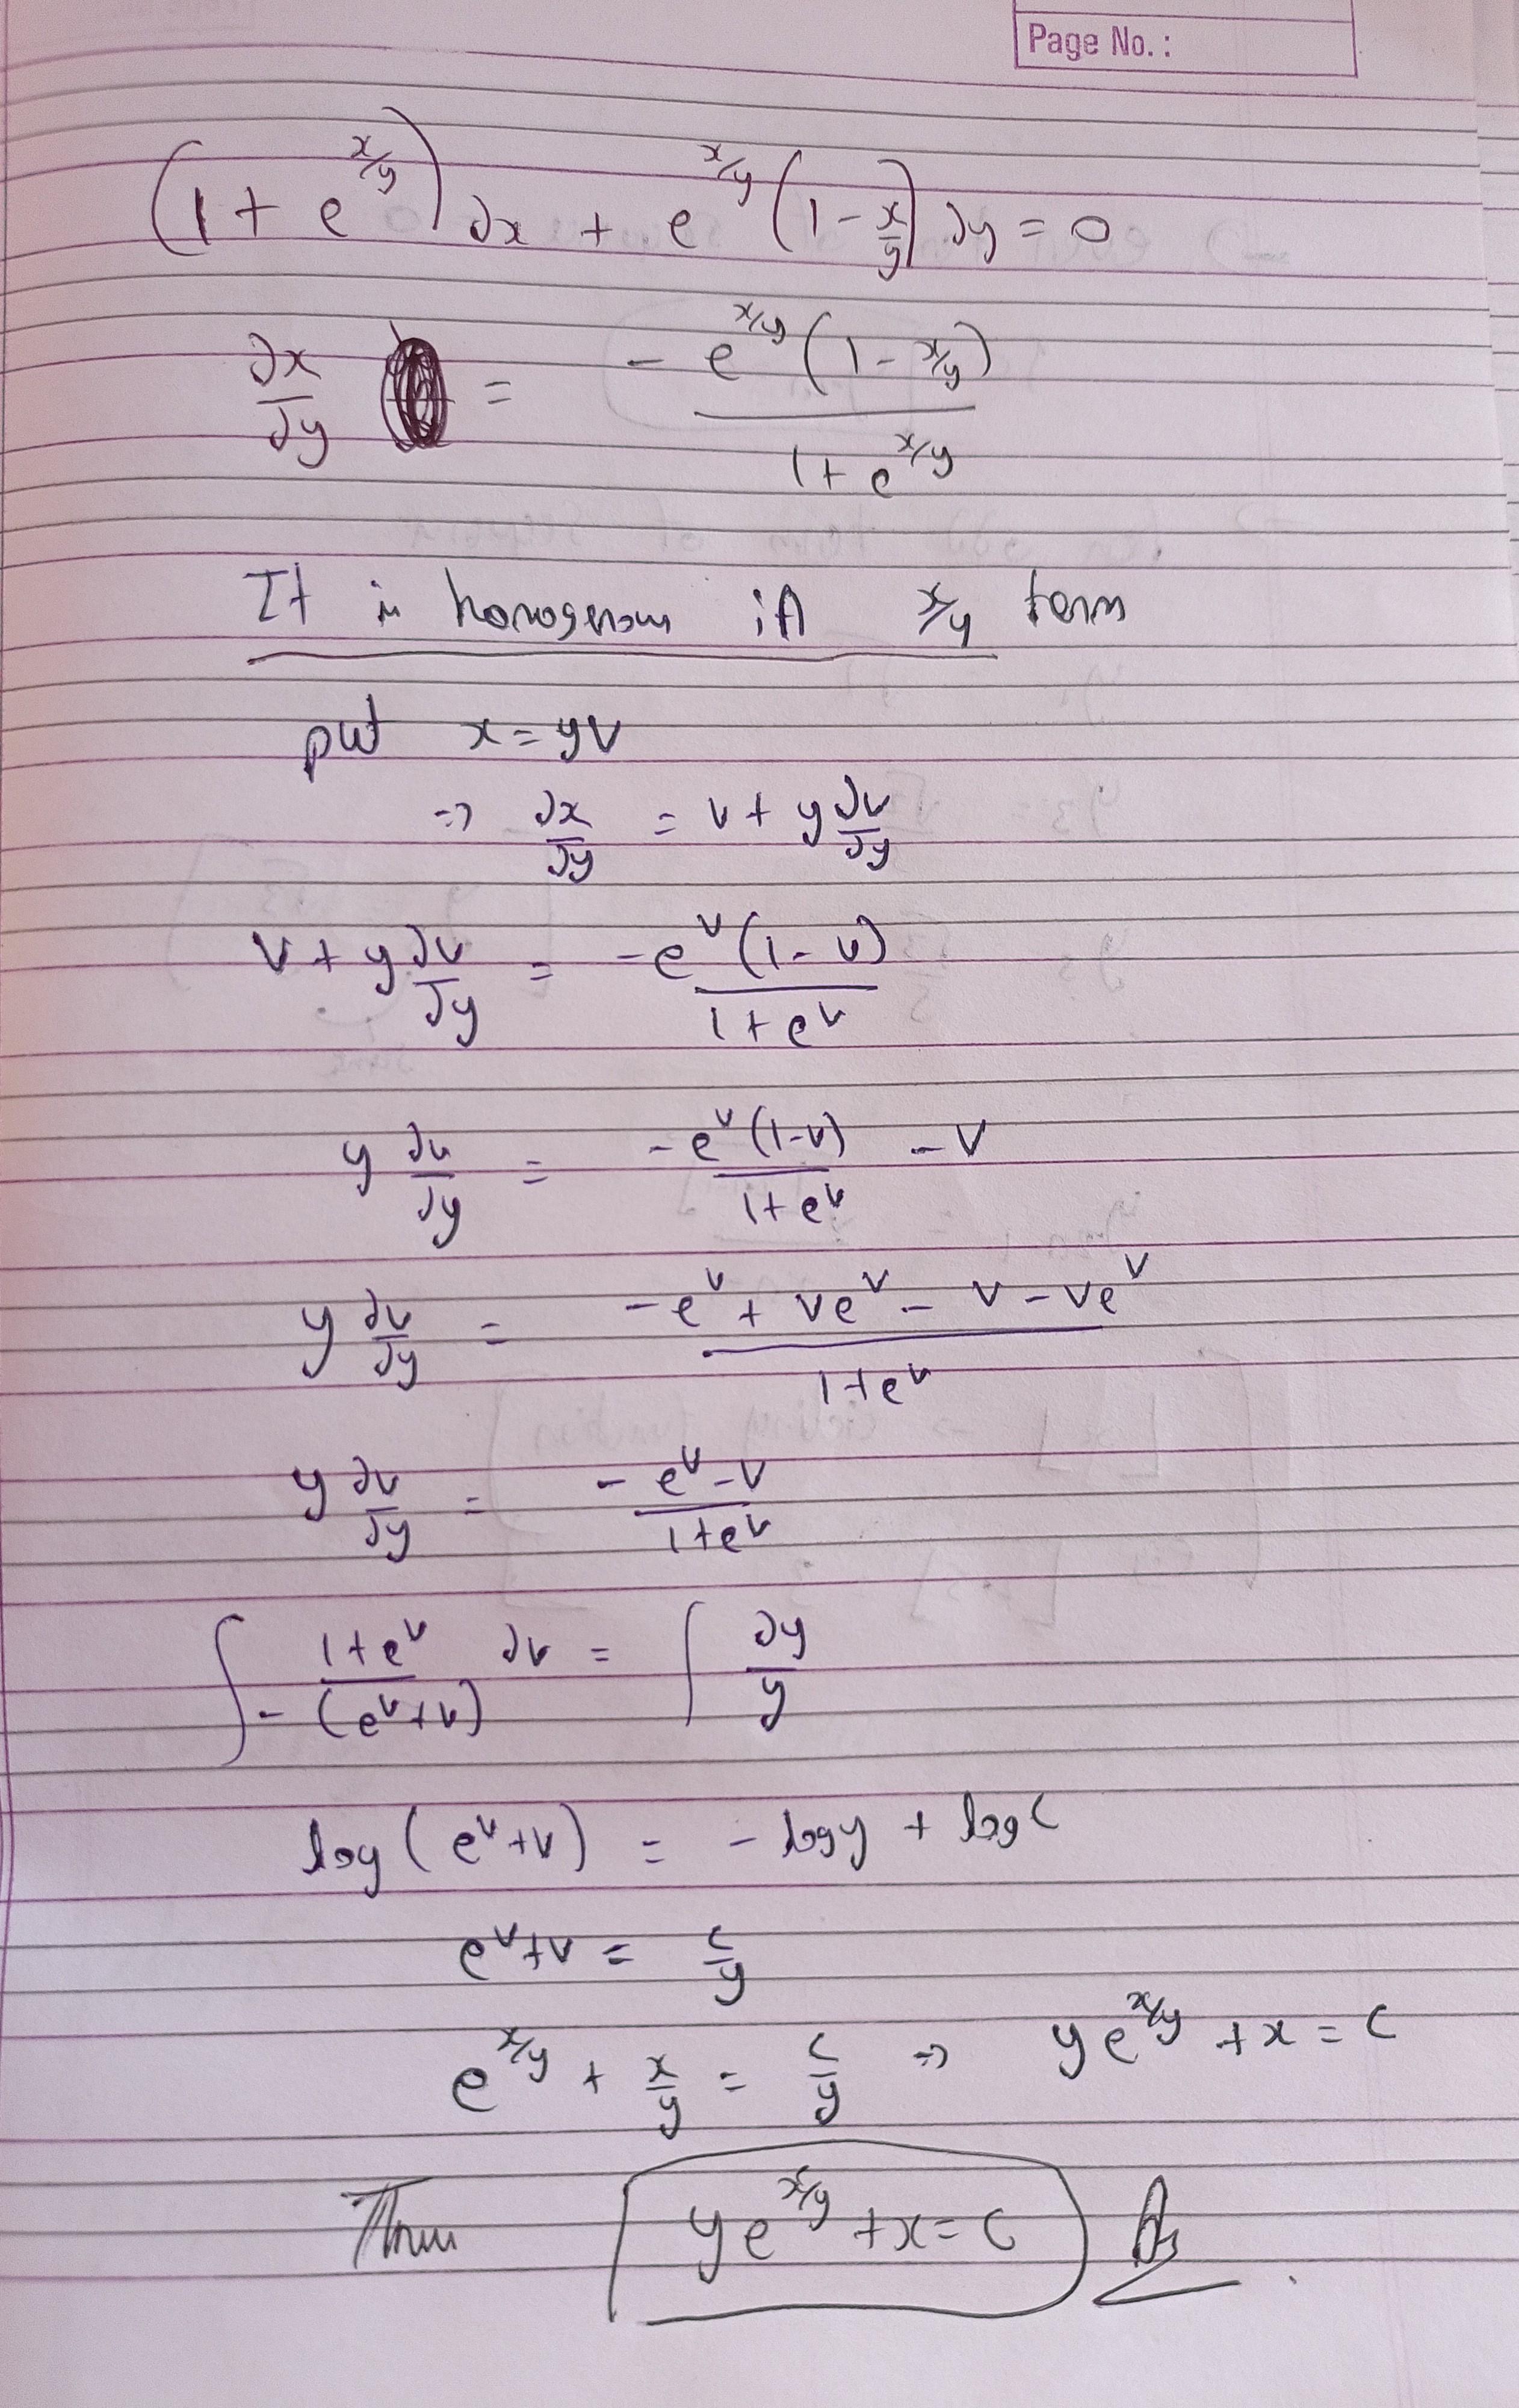 Page No. :
(1 + e^{x/y}) dx + e^{x/y} (1 - x/y) dy = 0
dx/dy = - e^{x/y} (1 - x/y) / 1 + e^{x/y}
It is homogenous in x/y term
put x = yv
=> dx/dy = v + y dv/dy
v + y dv/dy = -e^v (1 - v) / 1 + e^v
y dv/dy = -e^v (1-v) / 1 + e^v - v
y dv/dy = -e^v + ve^v - v - ve^v / 1 + e^v
y dv/dy = - e^v - v / 1 + e^v
∫ 1 + e^v / -(e^v + v) dv = ∫ dy/y
log (e^v + v) = - log y + log c
e^v + v = c/y
e^{x/y} + x/y = c/y => y e^{x/y} + x = c
y e^{x/y} + x = c